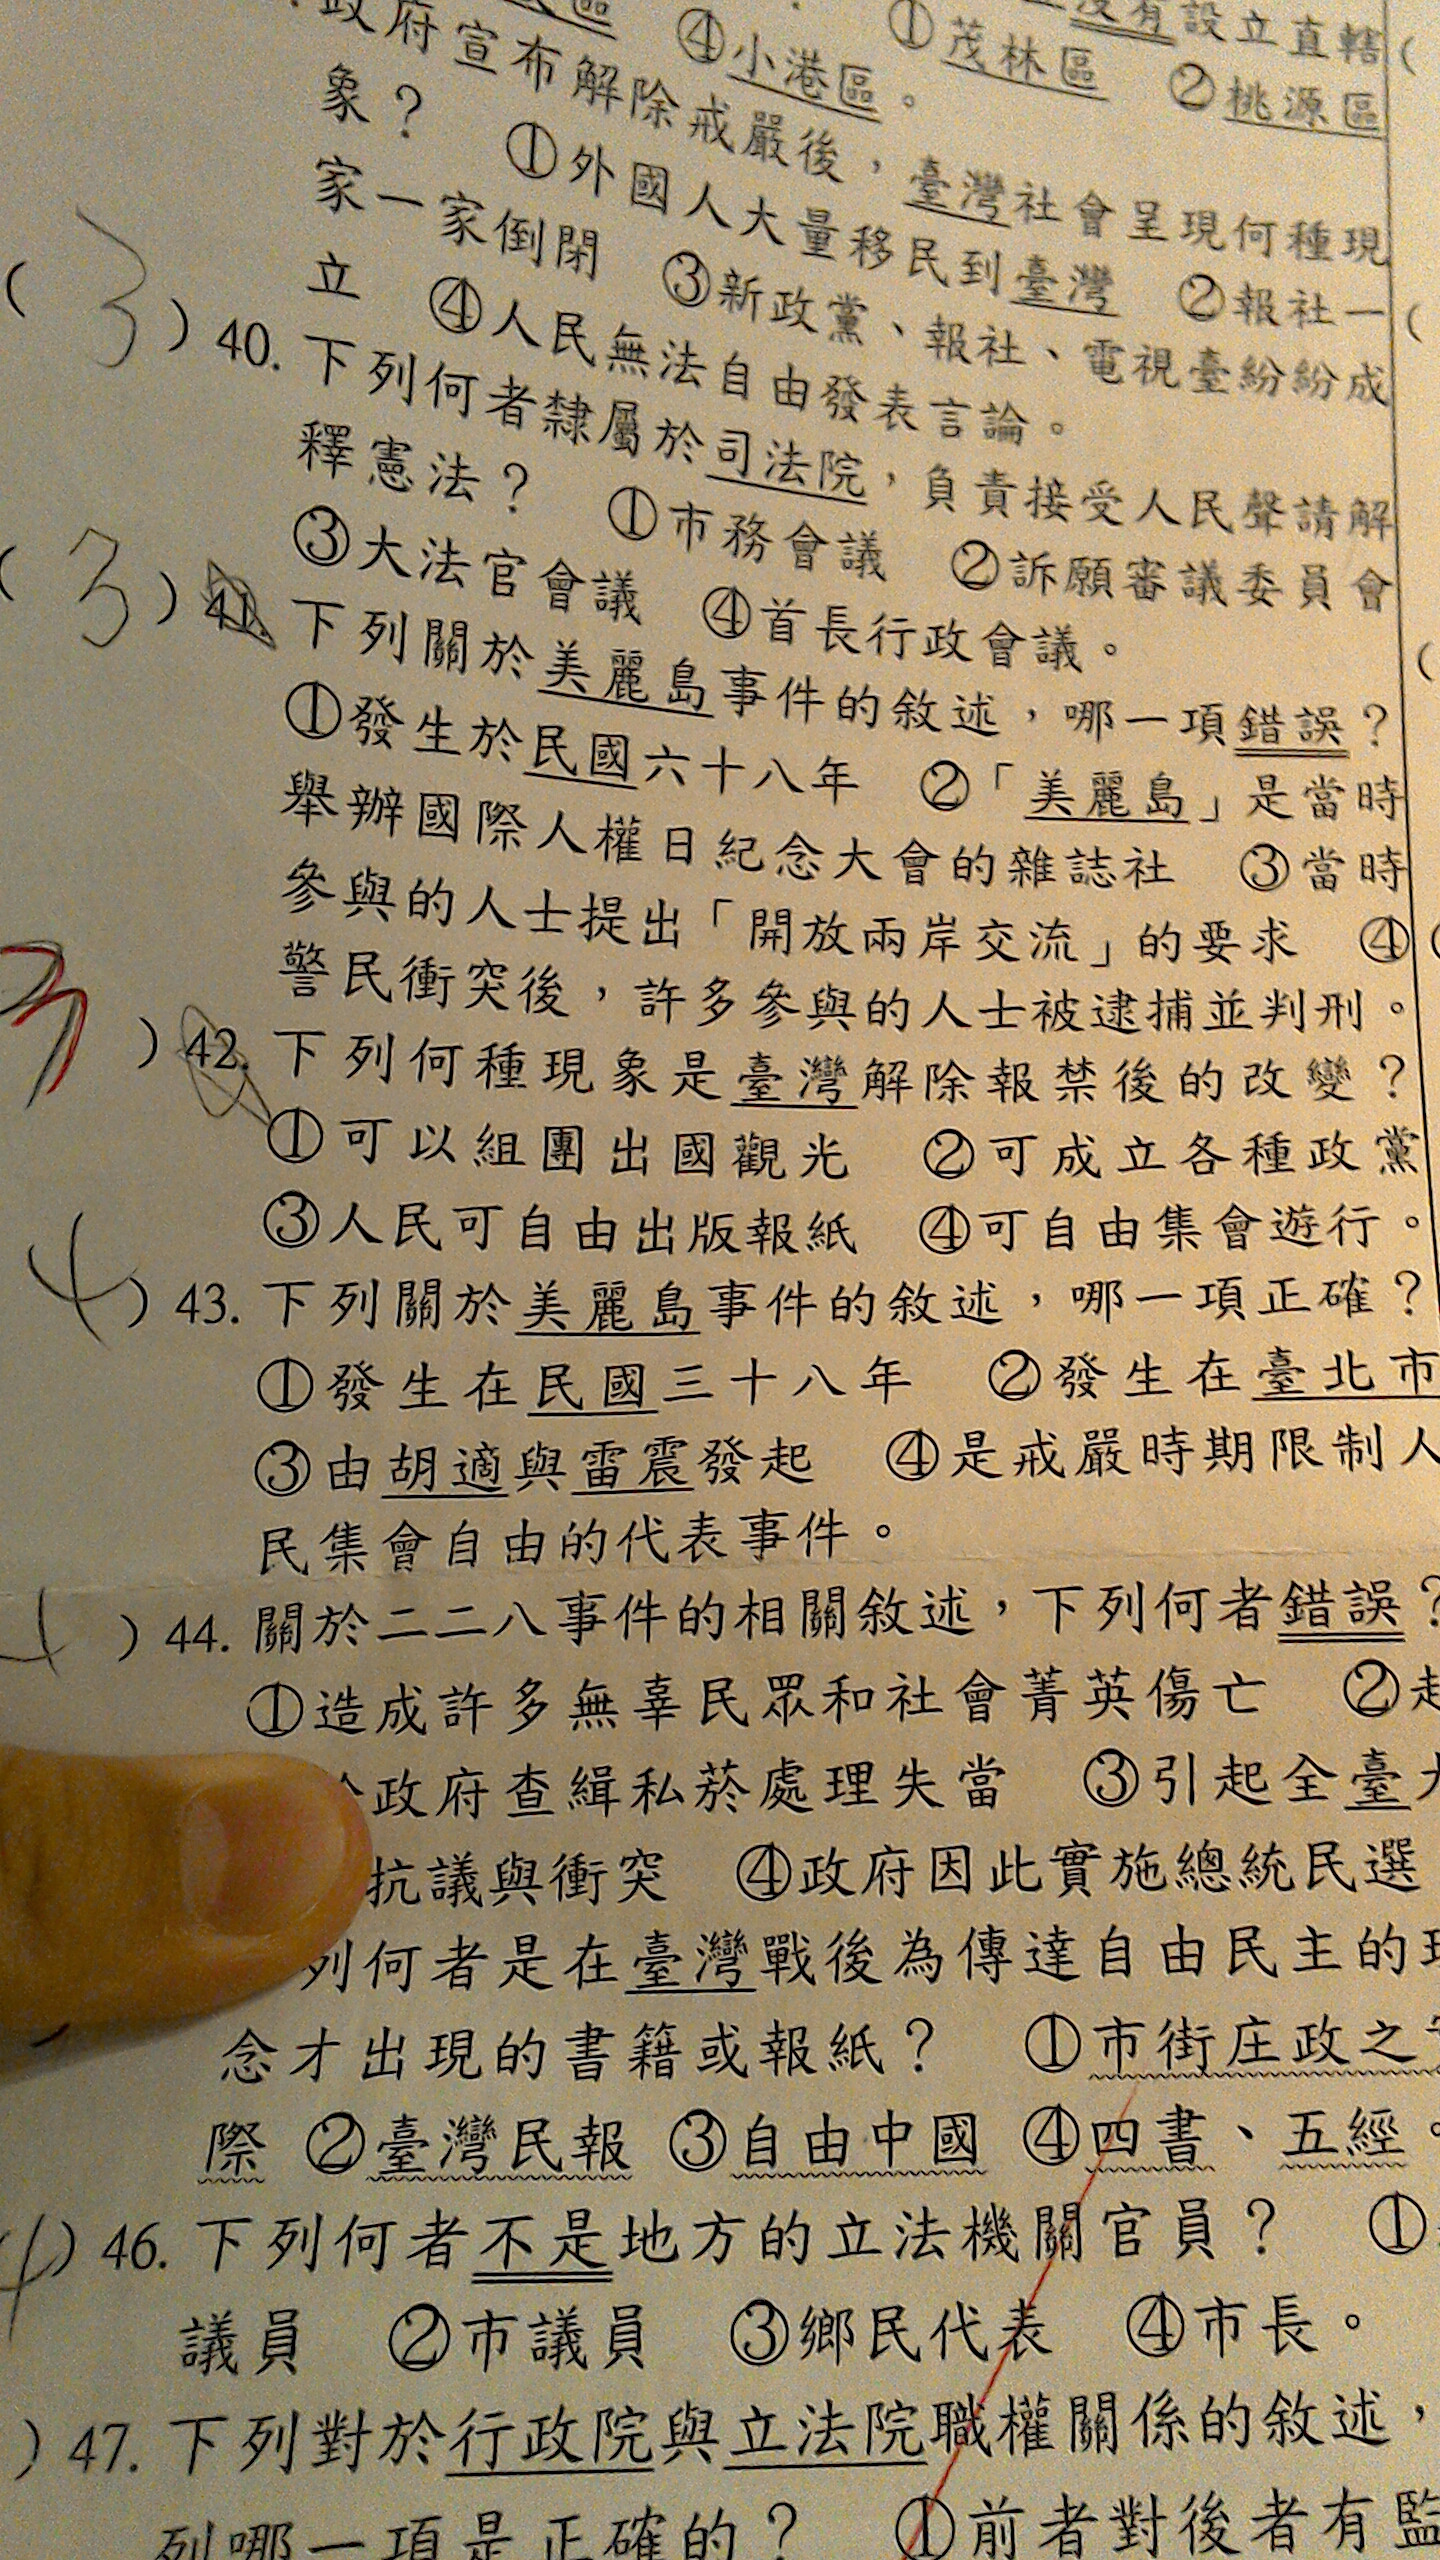 ④小港區。 ①茂林區 ②桃源區
沒有設立直轄
政府宣布解除戒嚴後，臺灣社會呈現何種現
象？ ①外國人大量移民到臺灣 ②報社一
家一家倒閉 ③新政黨、報社、電視臺紛紛成
立 ④人民無法自由發表言論。
(3)40. 下列何者隸屬於司法院，負責接受人民聲請解
釋憲法？ ①市務會議 ②訴願審議委員會
③大法官會議 ④首長行政會議。
(3)41. 下列關於美麗島事件的敘述，哪一項錯誤？
①發生於民國六十八年 ②「美麗島」是當時
舉辦國際人權日紀念大會的雜誌社 ③當時
參與的人士提出「開放兩岸交流」的要求 ④
警民衝突後，許多參與的人士被逮捕並判刑。
3)42. 下列何種現象是臺灣解除報禁後的改變？
①可以組團出國觀光 ②可成立各種政黨
③人民可自由出版報紙 ④可自由集會遊行。
4)43. 下列關於美麗島事件的敘述，哪一項正確？
①發生在民國三十八年 ②發生在臺北市
③由胡適與雷震發起 ④是戒嚴時期限制人
民集會自由的代表事件。
)44. 關於二二八事件的相關敘述，下列何者錯誤？
①造成許多無辜民眾和社會菁英傷亡 ②
政府查緝私菸處理失當 ③引起全臺
抗議與衝突 ④政府因此實施總統民選
列何者是在臺灣戰後為傳達自由民主的
念才出現的書籍或報紙？ ①市街庄政之
際 ②臺灣民報 ③自由中國 ④四書、五經。
4)46. 下列何者不是地方的立法機關官員？ ①
議員 ②市議員 ③鄉民代表 ④市長。
)47. 下列對於行政院與立法院職權關係的敘述，
列哪一項是正確的？ ①前者對後者有監